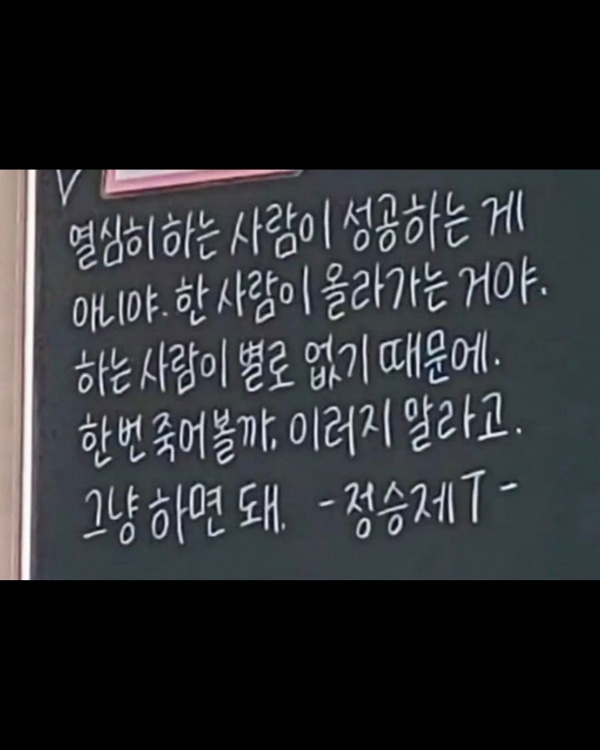 열심히 하는 사람이 성공하는 게
아니야. 한 사람이 올라가는 거야.
하는 사람이 별로 없기 때문에.
한번 죽어볼까, 이러지 말라고.
그냥 하면 돼. -정승제T-